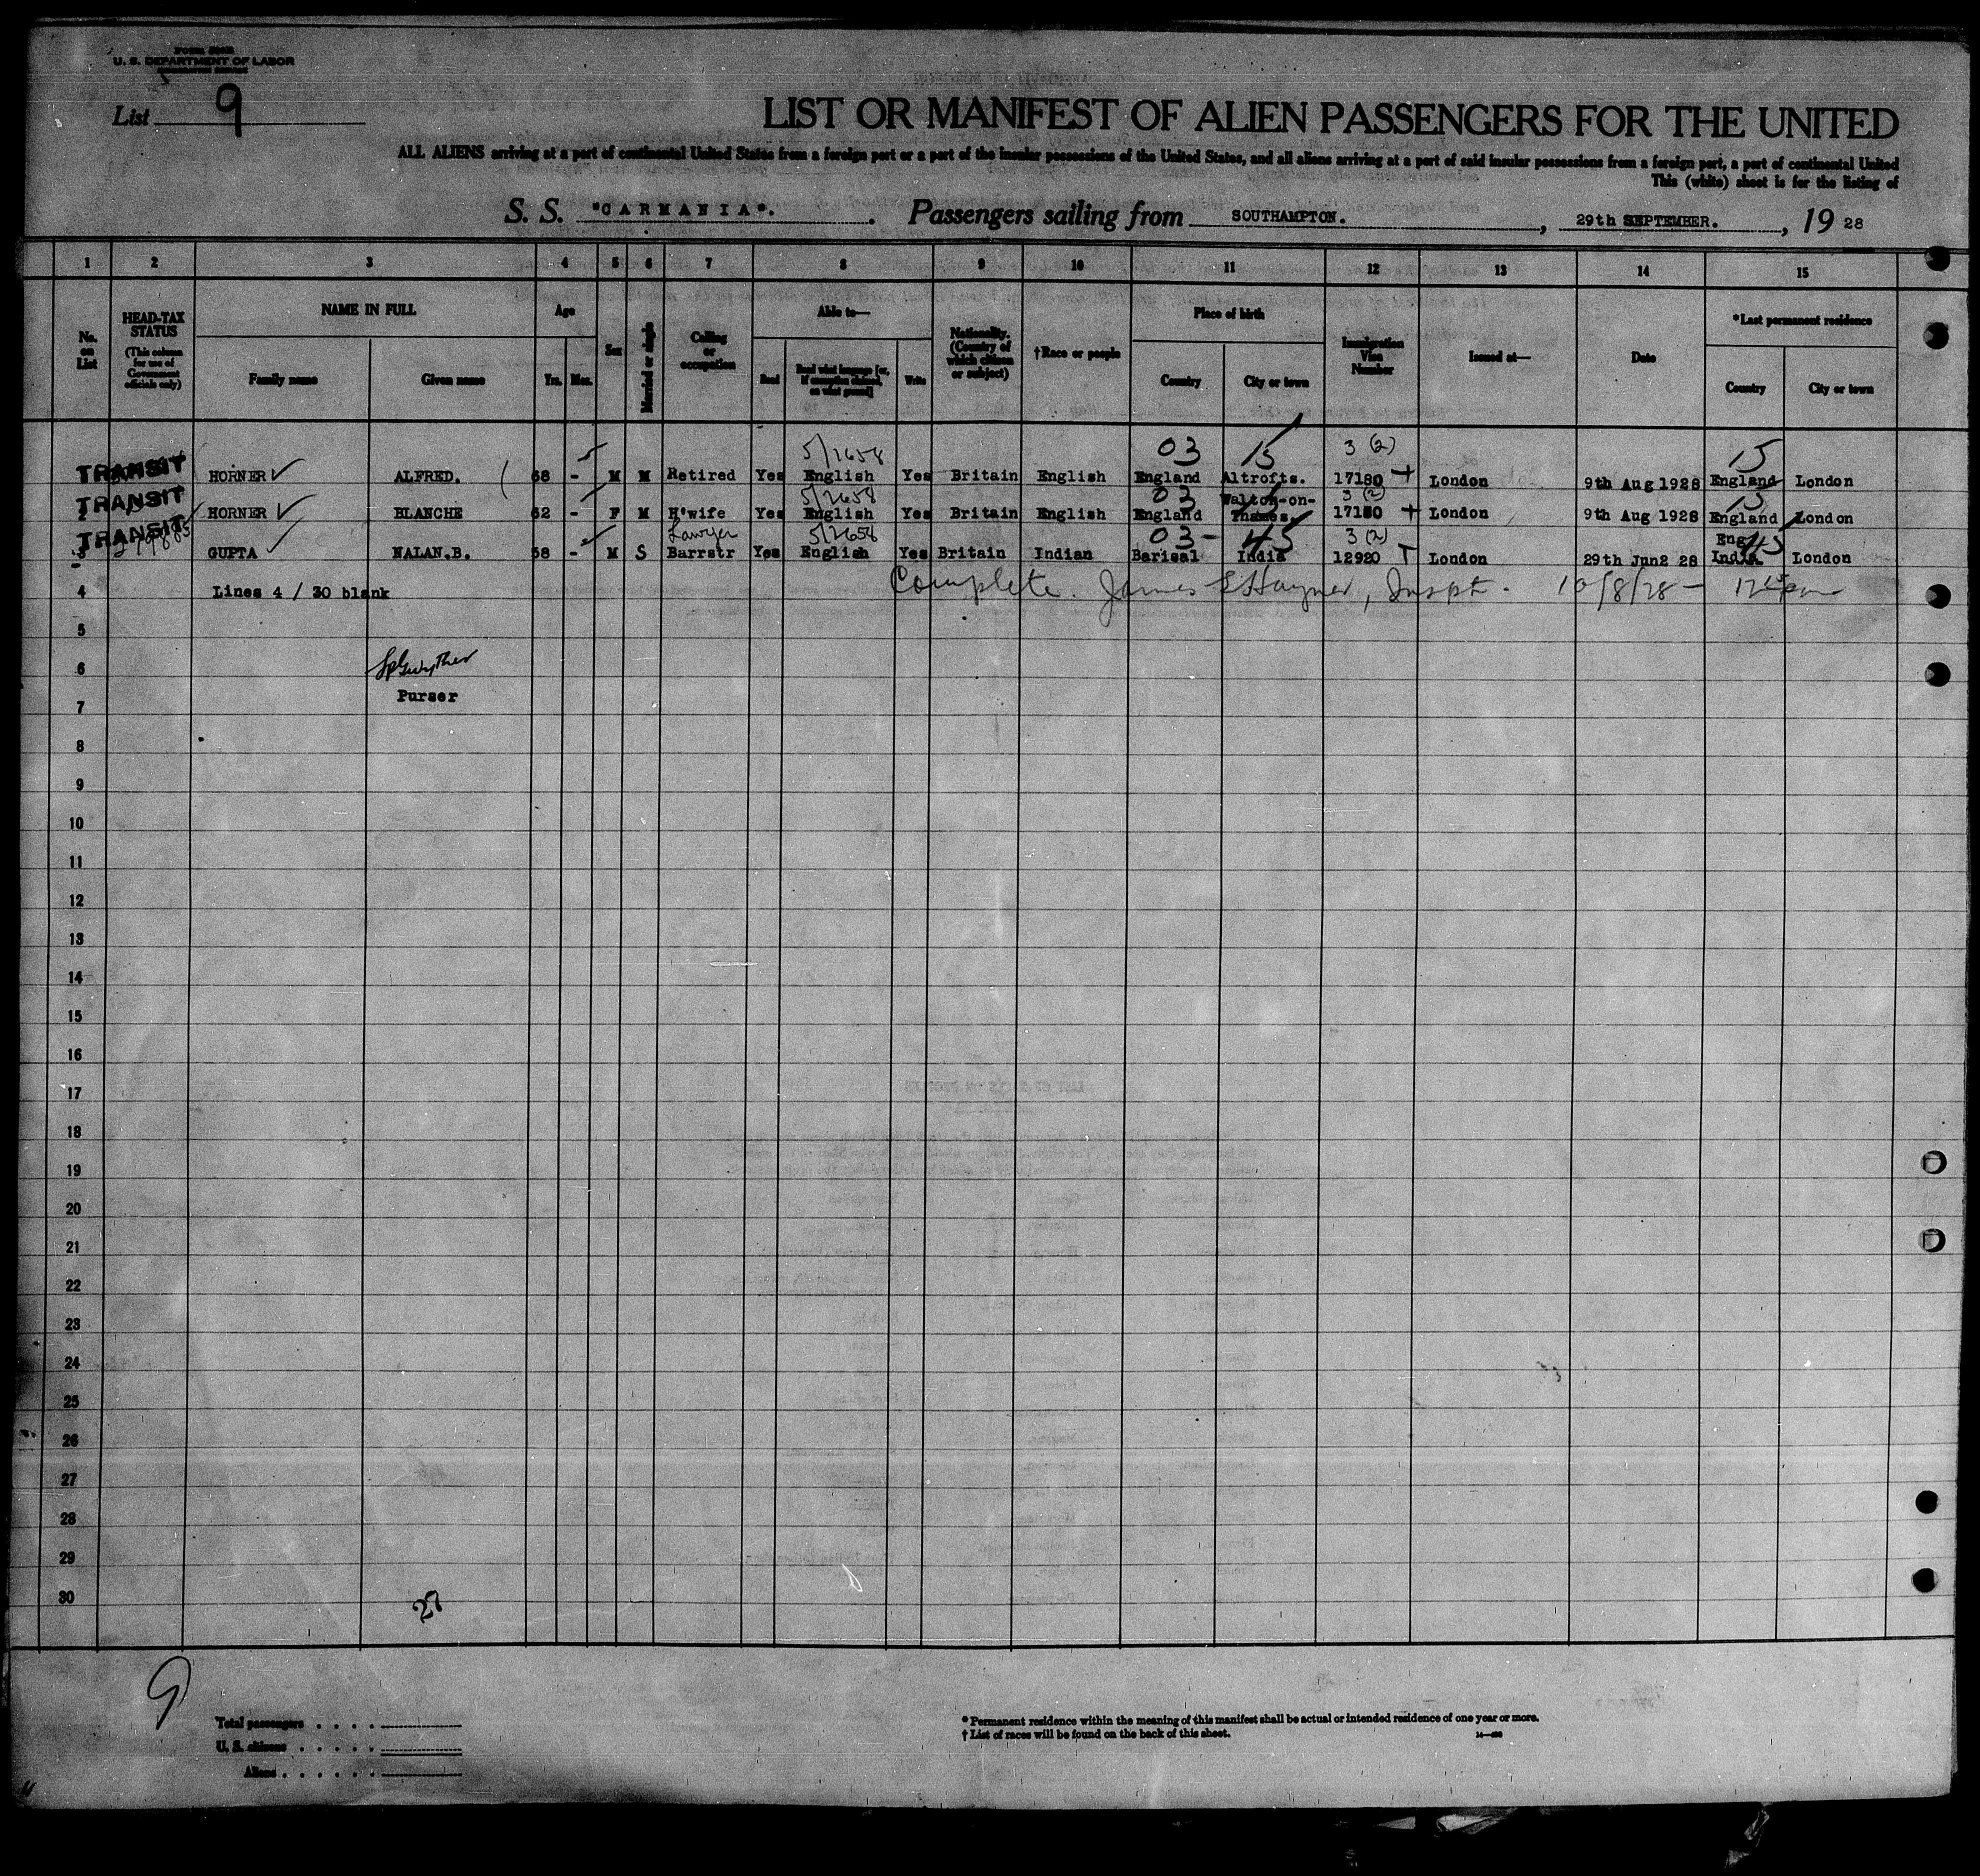 U. S. DEPARTMENT OF LABOR
List 9
LIST OR MANIFEST OF ALIEN PASSENGERS FOR THE UNITED
ALL ALIENS arriving at a port of continental United States from a foreign port or a port of the insular possessions of the United States, and all aliens arriving at a port of said insular possessions from a foreign port, a port of continental United
This (white) sheet is for the listing of
S. S. "CARMANIA". Passengers sailing from SOUTHAMPTON. , 29th SEPTEMBER. , 19 28
1 2 3 4 5 6 7 8 9 10 11 12 13 14 15
No. on List
HEAD-TAX STATUS (This column for use of Government officials only)
NAME IN FULL
Family name Given name
Age
Yrs. Mos.
Sex
Married or single
Calling or occupation
Able to—
Read Read what language [or, if exemption claimed, on what ground] Write
Nationality. (Country of which citizen or subject)
†Race or people
Place of birth
Country City or town
Immigration Visa Number
Issued at—
Date
*Last permanent residence
Country City or town
5/2658 03 15 3 (2) 15
TRANSIT HORNER ALFRED. 68 - M M Retired Yes English Yes Britain English England Altrofts. 17180 London 9th Aug 1928 England London
5/2658 03 Walton-on- 3 (2) 15
TRANSIT 2 HORNER BLANCHE 62 - F M H'wife Yes English Yes Britain English England Thames. 17180 London 9th Aug 1928 England London
Lawyer 5/2658 03- 45 3 (2) Eng 45
TRANSIT 3 GUPTA NALAN.B. 58 - M S Barrstr Yes English Yes Britain Indian Barisal India 12920 London 29th Jun2 28 India. London
4 Lines 4 / 30 blank Complete. James Haynes, Inspt. 10/8/28 -
5
6
Purser
7
8
9
10
11
12
13
14
15
16
17
18
19
20
21
22
23
24
25
26
27
28
29
30
27
9
Total passengers
U. S. citizens
Aliens
* Permanent residence within the meaning of this manifest shall be actual or intended residence of one year or more.
† List of races will be found on the back of this sheet.